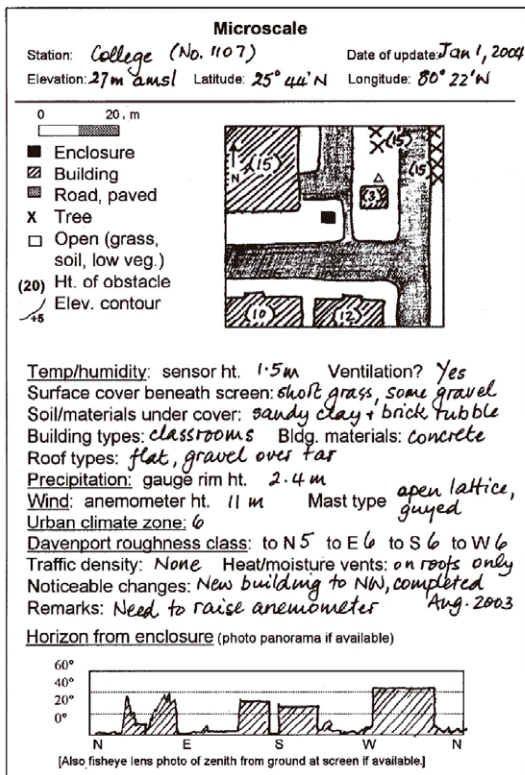 Microscale
Station: College (No. 1107) Date of update: Jan 1, 2004
Elevation: 27m amsl Latitude: 25° 44'N Longitude: 80° 22'W
0 20, m
Enclosure
Building
Road, paved
X Tree
Open (grass,
soil, low veg.)
(20) Ht. of obstacle
Elev. contour
+5
(15)
N
(15)
(15)
(3)
(10)
(12)
Temp/humidity: sensor ht. 1.5m Ventilation? Yes
Surface cover beneath screen: short grass, some gravel
Soil/materials under cover: sandy clay + brick rubble
Building types: classrooms Bldg. materials: concrete
Roof types: flat, gravel over tar
Precipitation: gauge rim ht. 2.4 m
Wind: anemometer ht. 11 m Mast type open lattice,
guyed
Urban climate zone: 6
Davenport roughness class: to N 5 to E 6 to S 6 to W 6
Traffic density: None Heat/moisture vents: on roofs only
Noticeable changes: New building to NW, completed
Remarks: Need to raise anemometer Aug. 2003
Horizon from enclosure (photo panorama if available)
60°
40°
20°
0°
N E S W N
[Also fisheye lens photo of zenith from ground at screen if available.]